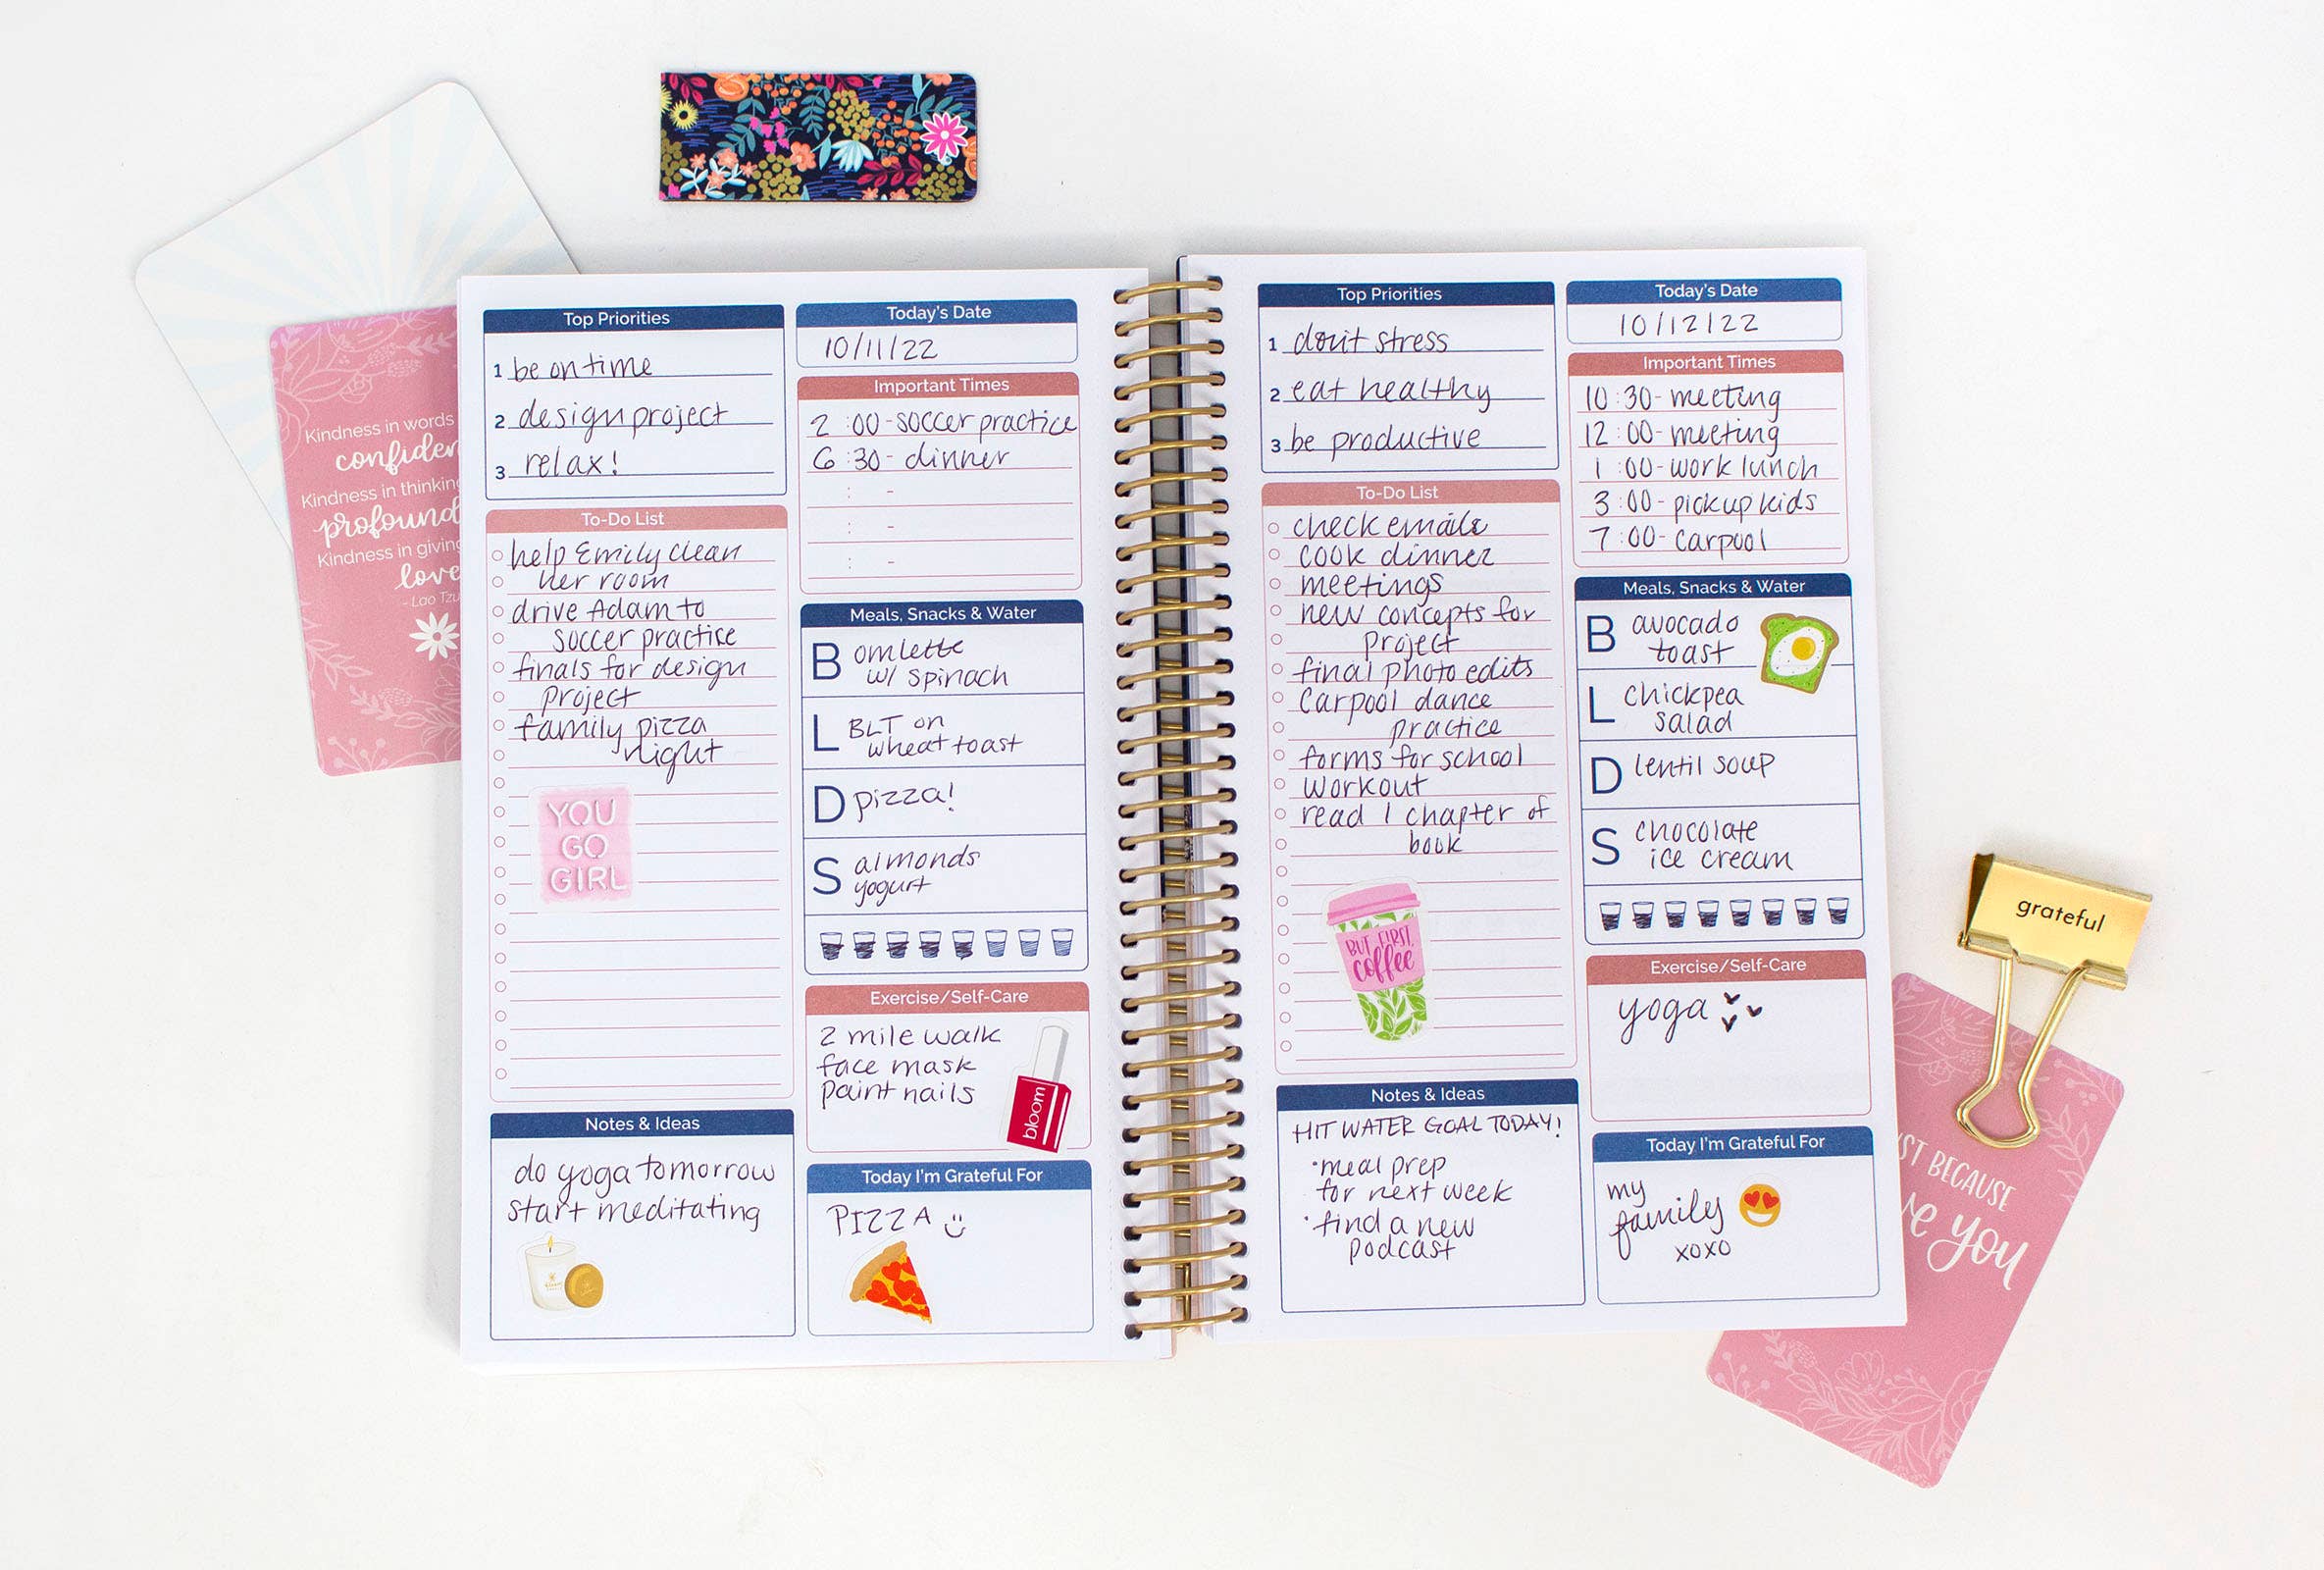 Kindness in words
confiden
Kindness in thinking
profound
Kindness in giving
love
- Lao Tzu
Top Priorities
1 be on time
2 design project
3 relax!
To-Do List
help Emily clean
her room
drive Adam to
soccer practice
finals for design
project
family pizza
night
YOU
GO
GIRL
Notes & Ideas
do yoga tomorrow
start meditating
Today's Date
10/11/22
Important Times
2:00-soccer practice
6:30- dinner
: -
: -
: -
Meals, Snacks & Water
B omlette
w/ spinach
L BLT on
wheat toast
D pizza!
S almonds
yogurt
Exercise/Self-Care
2 mile walk
face mask
paint nails
bloom
Today I'm Grateful For
PIZZA
Top Priorities
1 don't stress
2 eat healthy
3 be productive
To-Do List
check emails
cook dinner
meetings
new concepts for
project
final photo edits
carpool dance
practice
forms for school
workout
read 1 chapter of
book
BUT FIRST,
coffee
Notes & Ideas
HIT WATER GOAL TODAY!
•meal prep
for next week
•find a new
podcast
Today's Date
10/12/22
Important Times
10:30-meeting
12:00-meeting
1:00-work lunch
3:00-pickup kids
7:00-carpool
Meals, Snacks & Water
B avocado
toast
L chickpea
salad
D lentil soup
S chocolate
ice cream
Exercise/Self-Care
yoga
Today I'm Grateful For
my
family
xoxo
grateful
ST BECAUSE
ve you